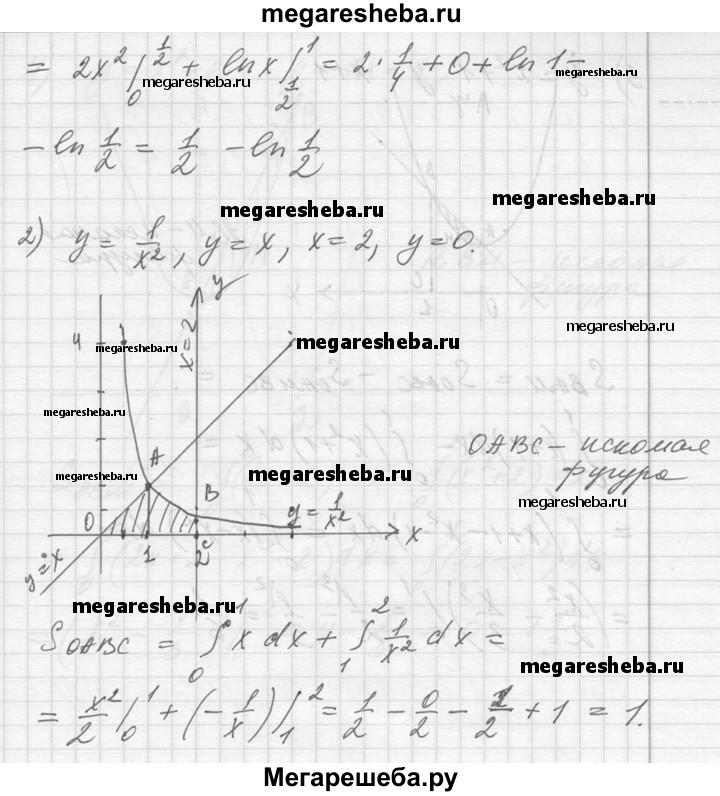 megaresheba.ru
= 2x² |₀^{1/2} + ln x |_{1/2}^1 = 2 · 1/4 + 0 + ln 1 –
megaresheba.ru megaresheba.ru
– ln 1/2 = 1/2 – ln 1/2
megaresheba.ru megaresheba.ru
2) y = 1/x², y = x, x = 2, y = 0.
y
megaresheba.ru
4 megaresheba.ru x=2 megaresheba.ru
megaresheba.ru
A OABC – искомая
megaresheba.ru B megaresheba.ru фугура
megaresheba.ru
0 y = 1/x²
1 2 C x
y = x
megaresheba.ru
S OABC = ∫₀¹ x dx + ∫₁² 1/x² dx =
megaresheba.ru
= x²/2 |₀¹ + (– 1/x) |₁² = 1/2 – 0/2 – 1/2 + 1 = 1.
Мегарешеба.ру